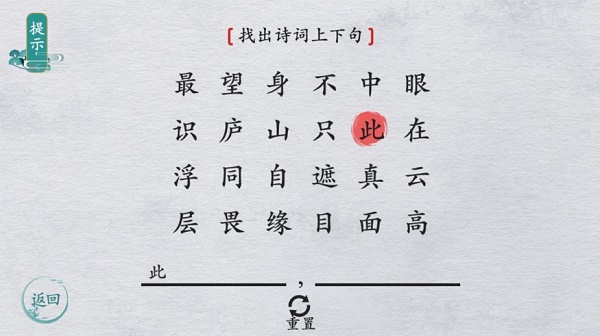 提示
[找出诗词上下句]
最望身不中眼
识庐山只此在
浮同自遮真云
层畏缘目面高
此
,
重置
返回